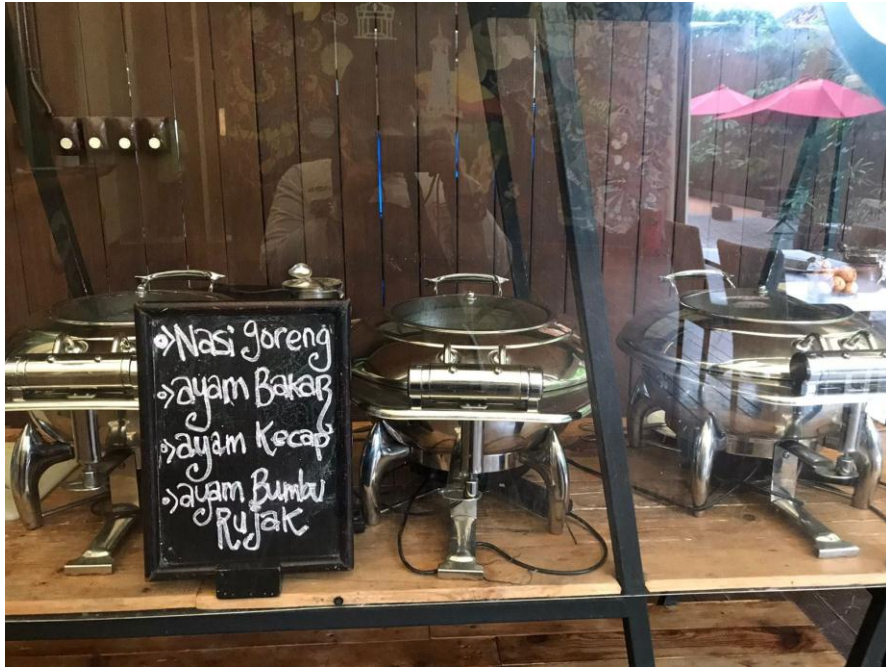 Nasi goreng
ayam Bakar
ayam Kecap
ayam Bumbu
Rujak